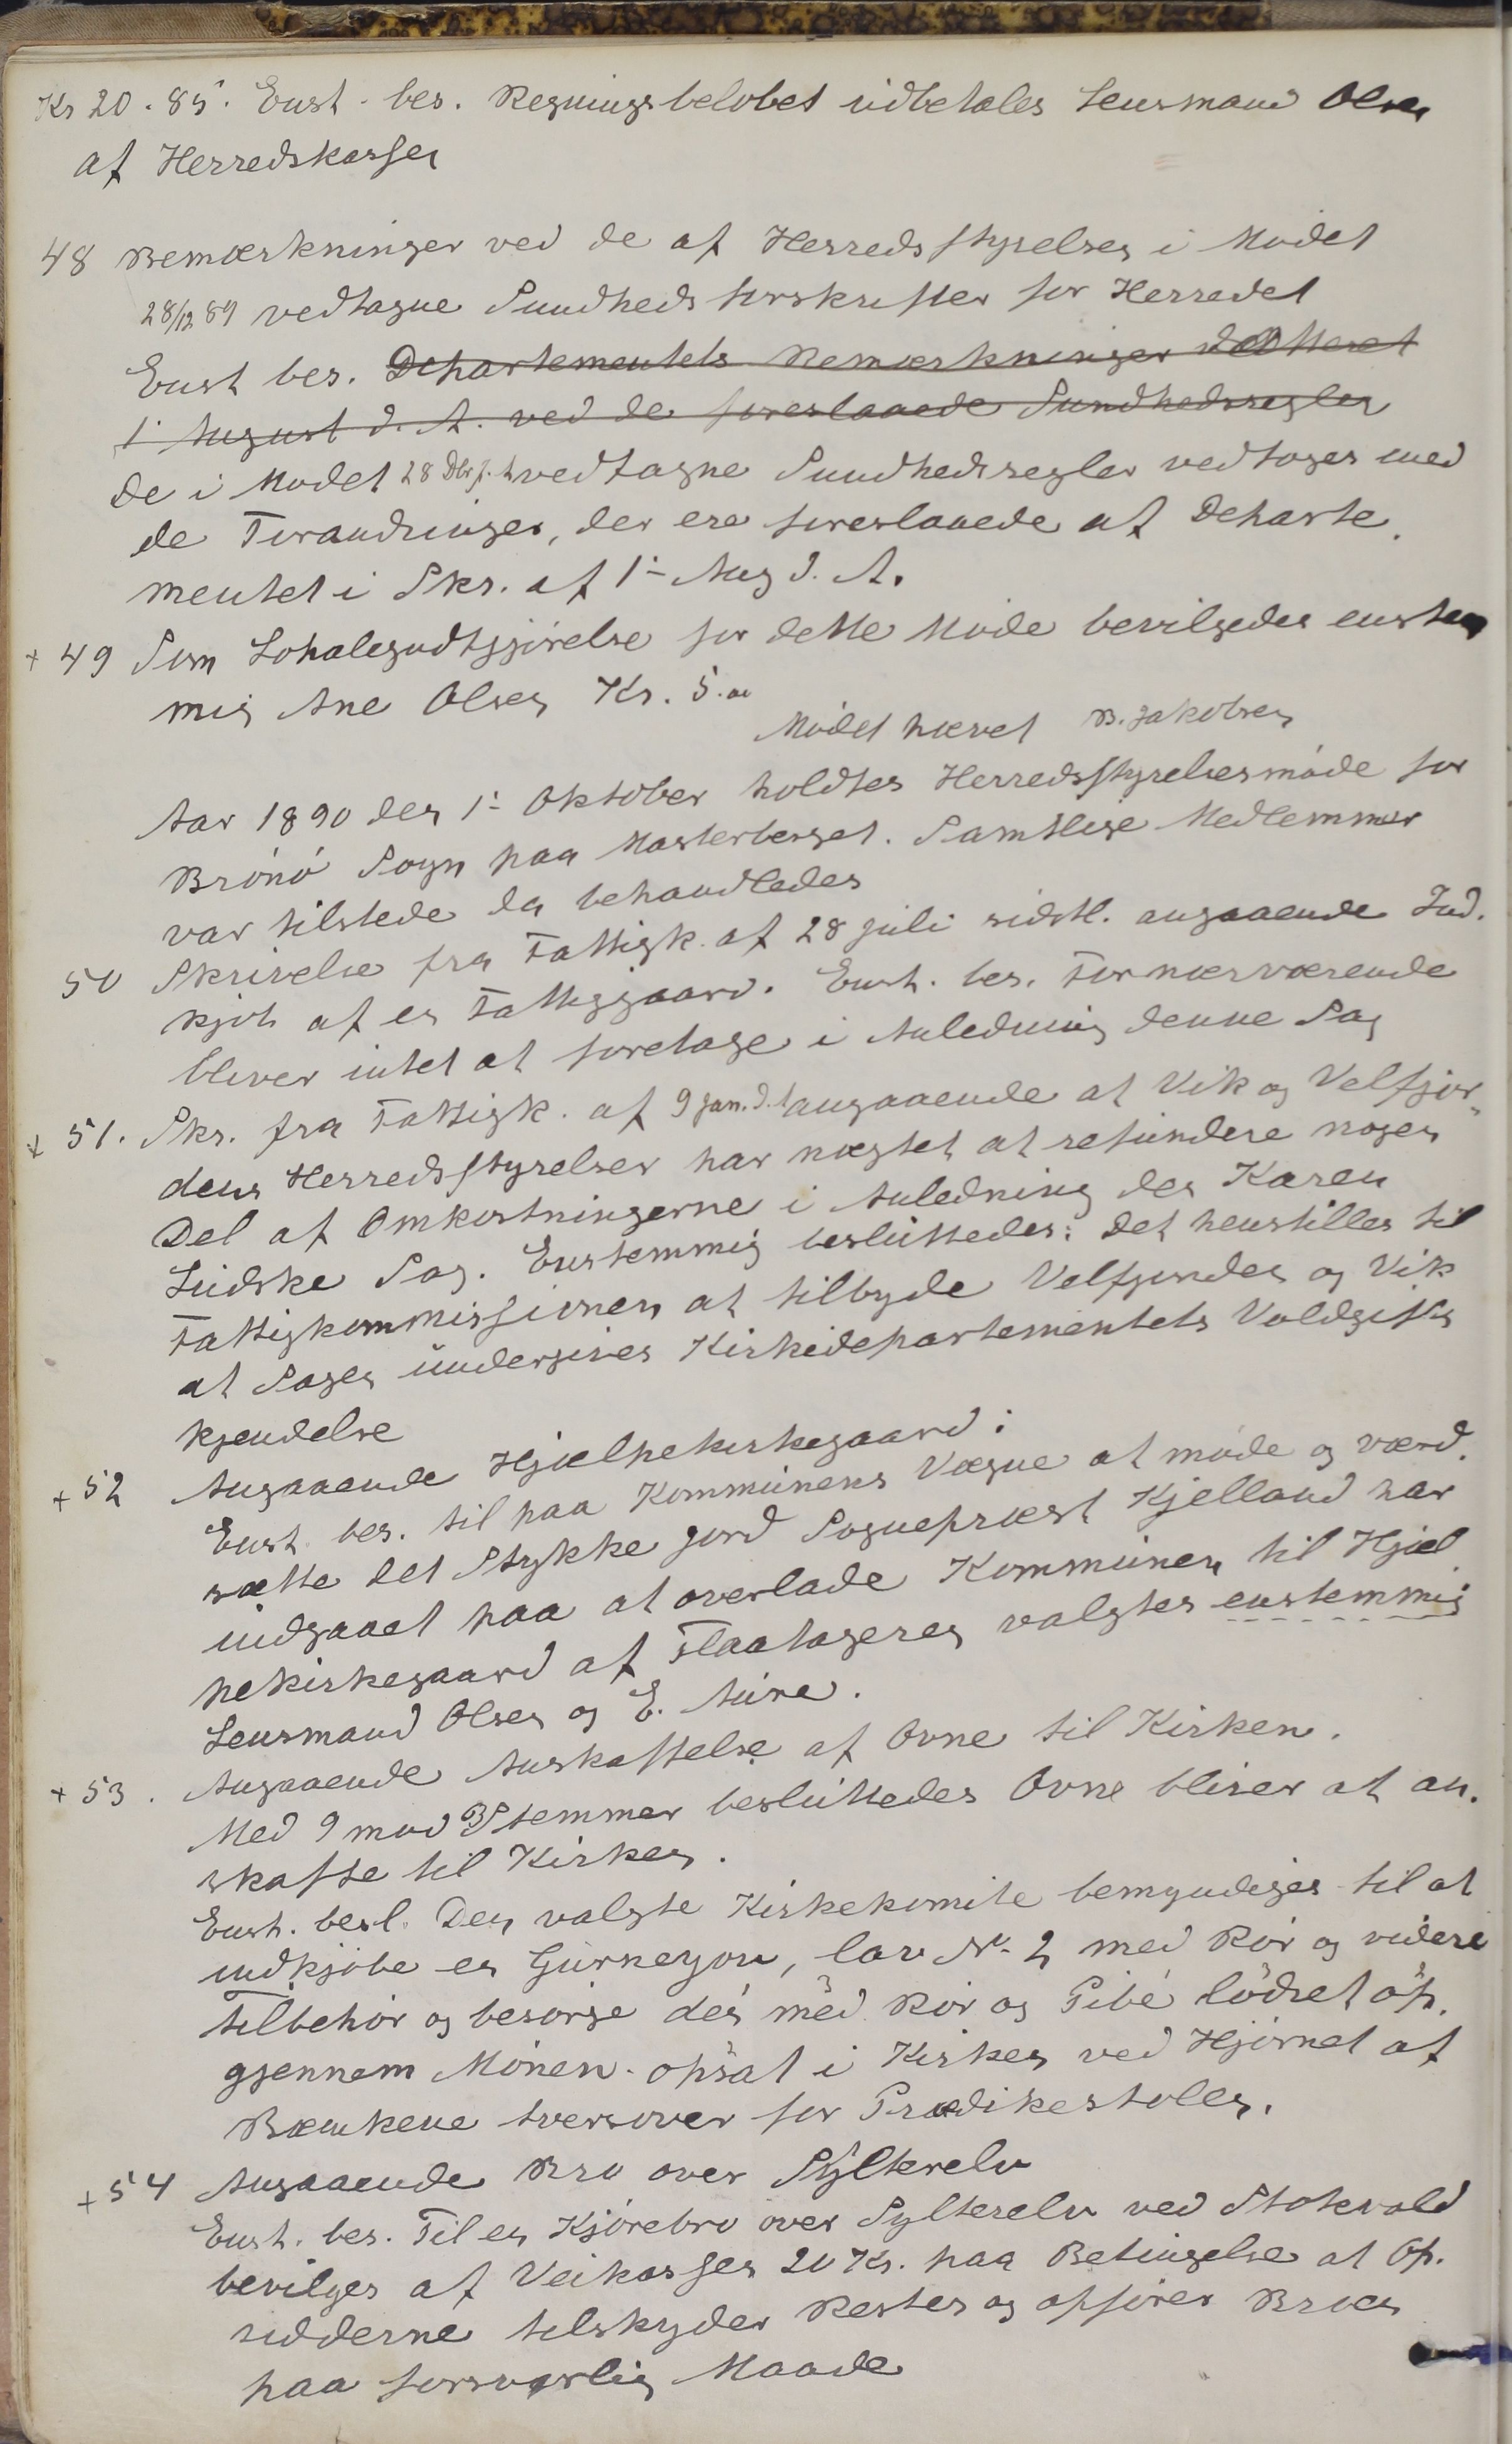 Kr 20.85. Enst. bes. Regningsbeløbet udbetales Lensmand Olsen
af Herredskassen
48 Bemærkninger ved de af Herredsstyrelsen i Mødet
28/12 89 vedtagne Sundheds forskrifter for Herredet
Enst bes. Departementets Bemærkninger dateret
1. August d. A. ved de foreslaaede Sundhedsregler
De i Mødet 28 Dbr f. A vedtagne Sundhedsregler vedtages med
de Forandringer, der ere foreslaaede af Departe.
mentet i Skr. af 1ste Aug d. A.
+ 49 Som Lokalegodtgjørelse for dette Møde bevilgedes enstem
mig Ane Olsen Kr. 5.00
Mødet hævet B. Jakobsen
Aar 1890 den 1ste Oktober holdtes Herredsstyrelsesmøde for
Brønø Sogn paa Mosterberget. Samtlige Medlemmer
var tilstede da behandledes
50 Skrivelse fra Fattigk. af 28 Juli sidstl. angaaende Ind.
kjøb af en Fattiggaard. Enst. bes. For nærværende
bliver intet at foretage i Anledning denne Sag
+ 51. Skr. fra Fattigk. af 9 Jan. d. A angaaende at Vik og Velfjor
dens Herredsstyrelser har nægtet at refundere nogen
Del af Omkostningerne i Anledning den Karen
Lidske Sag. Enstemmig besluttedes: Det henstilles til
Fattigkommissionen at tilbyde Velfjorden og Vik
at Sagen undergives Kirkedepartementets Voldgifts
kjendelse
+ 52 Angaaende Hjælpekirkegaard:
Enst. bes. til paa Kommunens Vegne at møde og værd.
sætte det Stykke Jord Sogneprest Kjelland har
indgaaet paa at overlade Kommunen til Hjæl
pekirkegaard af Flaatageren valgtes enstemmig
Lensmand Olsen og E. Aune.
+ 53. Angaaende Anskaffelse af Ovne til Kirken.
Med 9 mod 3 Stemmer besluttedes Ovne bliver at an.
skaffe til Kirken.
Enst. besl. Den valgte Kirkekomite bemyndiges til at
indkjøbe en Gurneyovn, lav No 2 med Rør og videre
Tilbehør og besørge den med Rør og Pibe lödret op.
gjennem Mønen opsat i Kirken ved Hjørnet af
Bænkene tversover for Prædikestolen.
+ 54 Angaaende Bro over Sylterelv
Enst. bes. Til en Kjørebro over Sylterelv ved Stokvold
bevilges af Veikassen 20 Kr. paa Betingelse at Op.
sidderne tilskyder Resten og opfører Broen
paa forsvarlig Maade